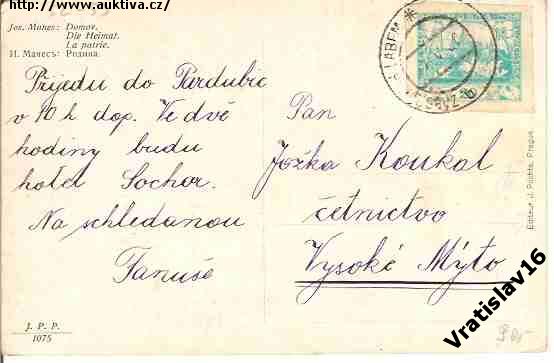 http://www.auktiva.cz/
Jos. Manes: Domov.
Die Heimat.
La patrie.
И. Манесъ: Родина.
Přijedu do Pardubic
v 10 h dop. Ve dvě
hodiny budu
hotel Sochor.
Na schledanou
J. P. P.
1075
Pan
Jožka Koukal
četnictvo
Vysoké Mýto
LABEM
Editeur J. Půchta, Prague
Vratislav16